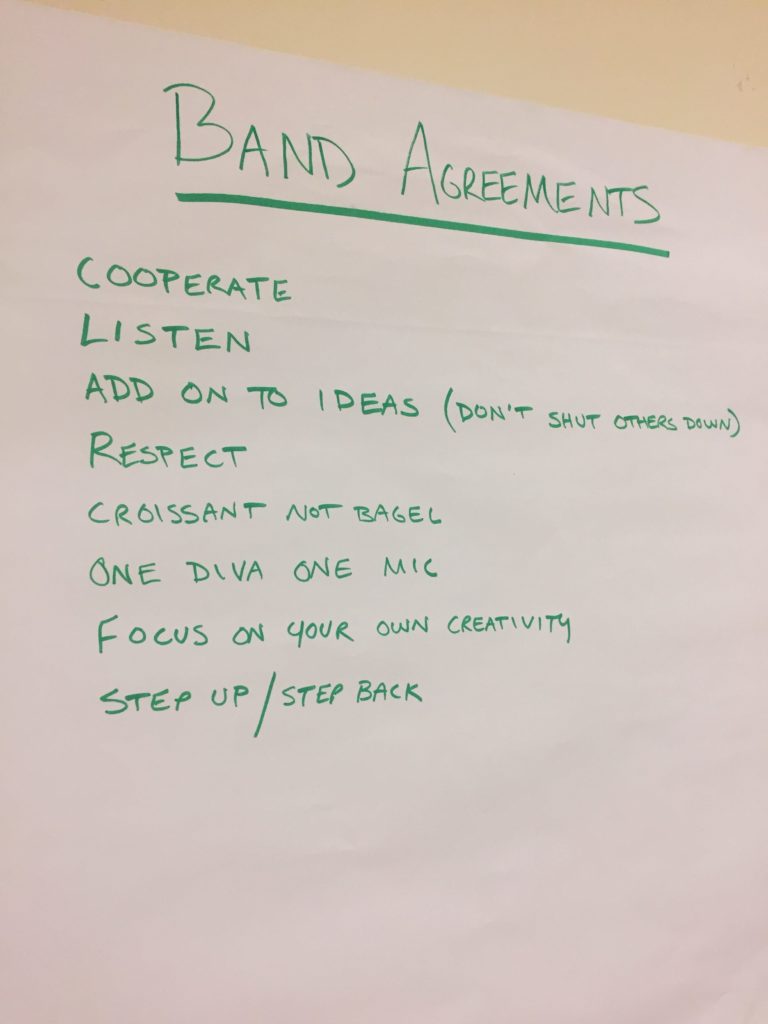 BAND AGREEMENTS
COOPERATE
LISTEN
ADD ON TO IDEAS (DON'T SHUT OTHERS DOWN)
RESPECT
CROISSANT NOT BAGEL
ONE DIVA ONE MIC
FOCUS ON YOUR OWN CREATIVITY
STEP UP/STEP BACK